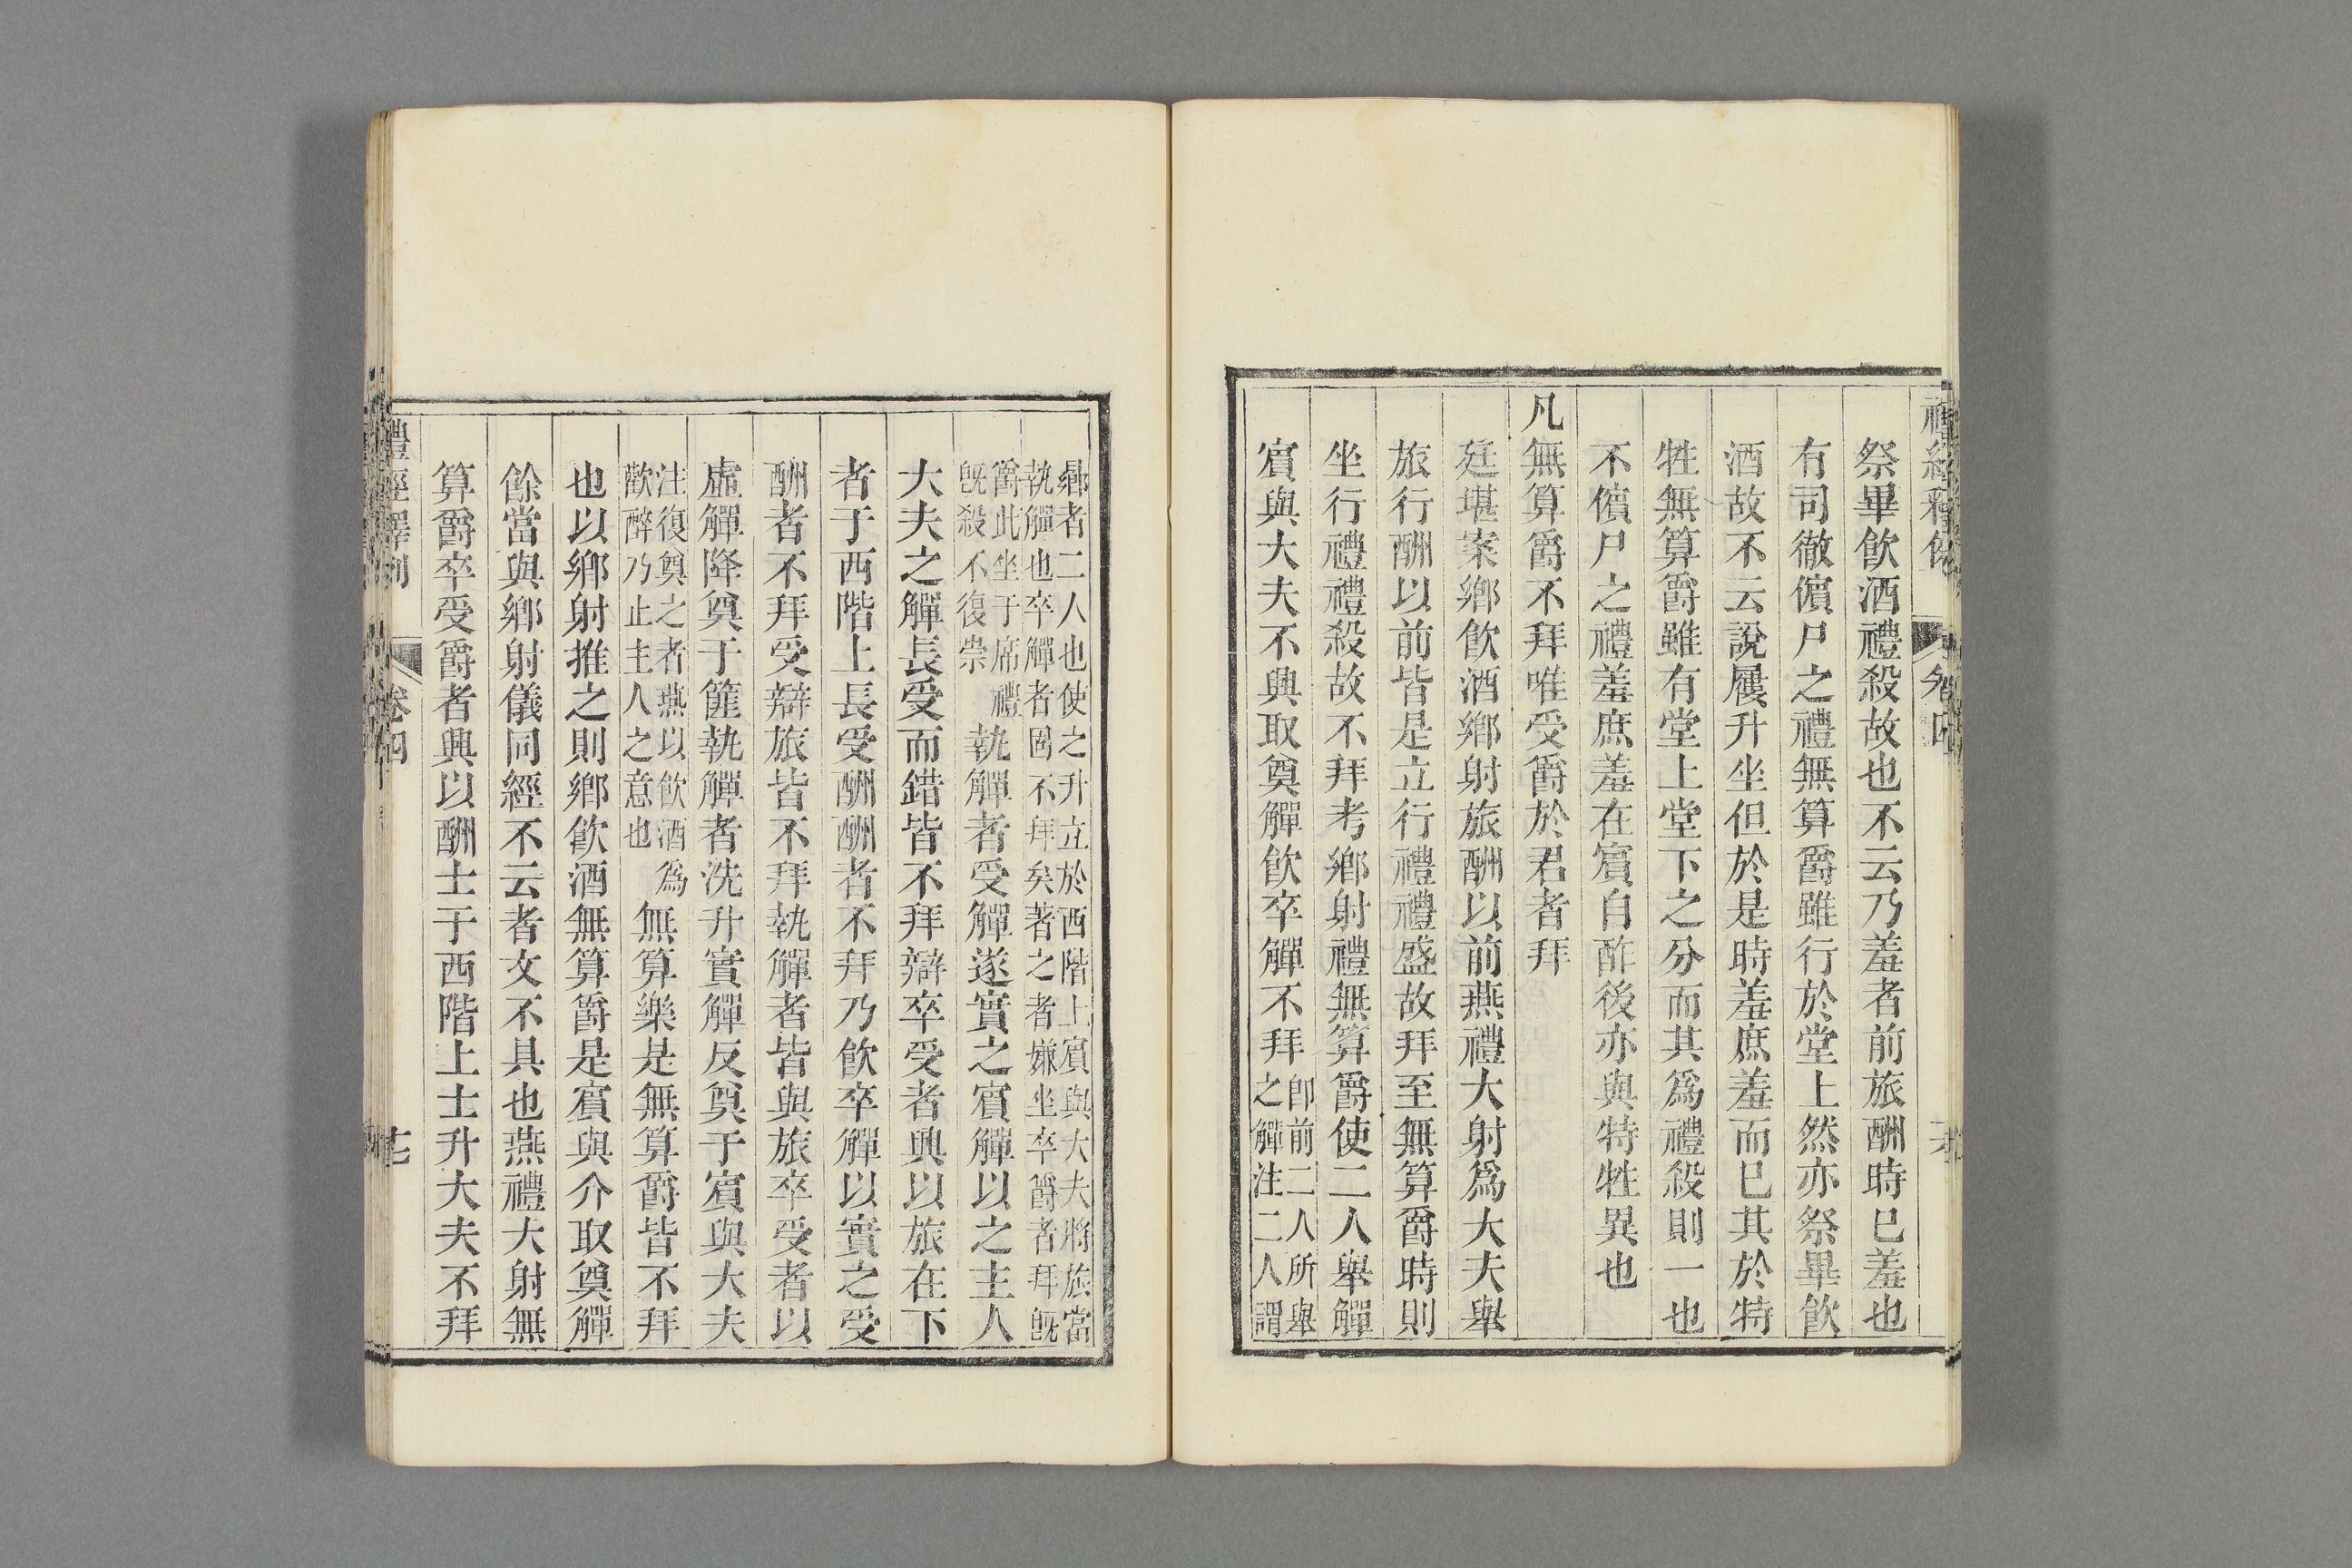 祭畢飲酒禮殺故也不云乃羞者前旅酬時已羞也
有司徹儐尸之禮無算爵雖行於堂上然亦祭畢飲
酒故不云說屨升坐但於是時羞庶羞而已其於特
牲無算爵雖有堂上堂下之分而其爲禮殺則一也
不儐尸之禮羞庶羞在賓自酢後亦與特牲異也
凡無算爵不拜唯受爵於君者拜
廷堪案鄉飲酒鄉射旅酬以前燕禮大射爲大夫舉
旅行酬以前皆是立行禮禮盛故拜至無算爵時則
坐行禮禮殺故不拜考鄉射禮無算爵使二人舉觶
賓與大夫不興取奠觶飲卒觶不拜
卽前二人所舉
之觶注二人謂
曏者二人也使之升立於西階上賓與大夫將旅當
執觶也卒觶者固不拜矣著之者嫌坐卒爵者拜旣
爵此坐于席禮
旣殺不復崇
執觶者受觶遂實之賓觶以之主人
大夫之觶長受而錯皆不拜辯卒受者興以旅在下
者于西階上長受酬酬者不拜乃飲卒觶以實之受
酬者不拜受辯旅皆不拜執觶者皆與旅卒受者以
虛觶降奠于篚執觶者洗升實觶反奠于賓與大夫
注復奠之者燕以飲酒爲
歡醉乃止主人之意也
無算樂是無算爵皆不拜
也以鄉射推之則鄉飲酒無算爵是賓與介取奠觶
餘當與鄉射儀同經不云者文不具也燕禮大射無
算爵卒受爵者興以酬士于西階上士升大夫不拜
禮經釋例
卷四
十七